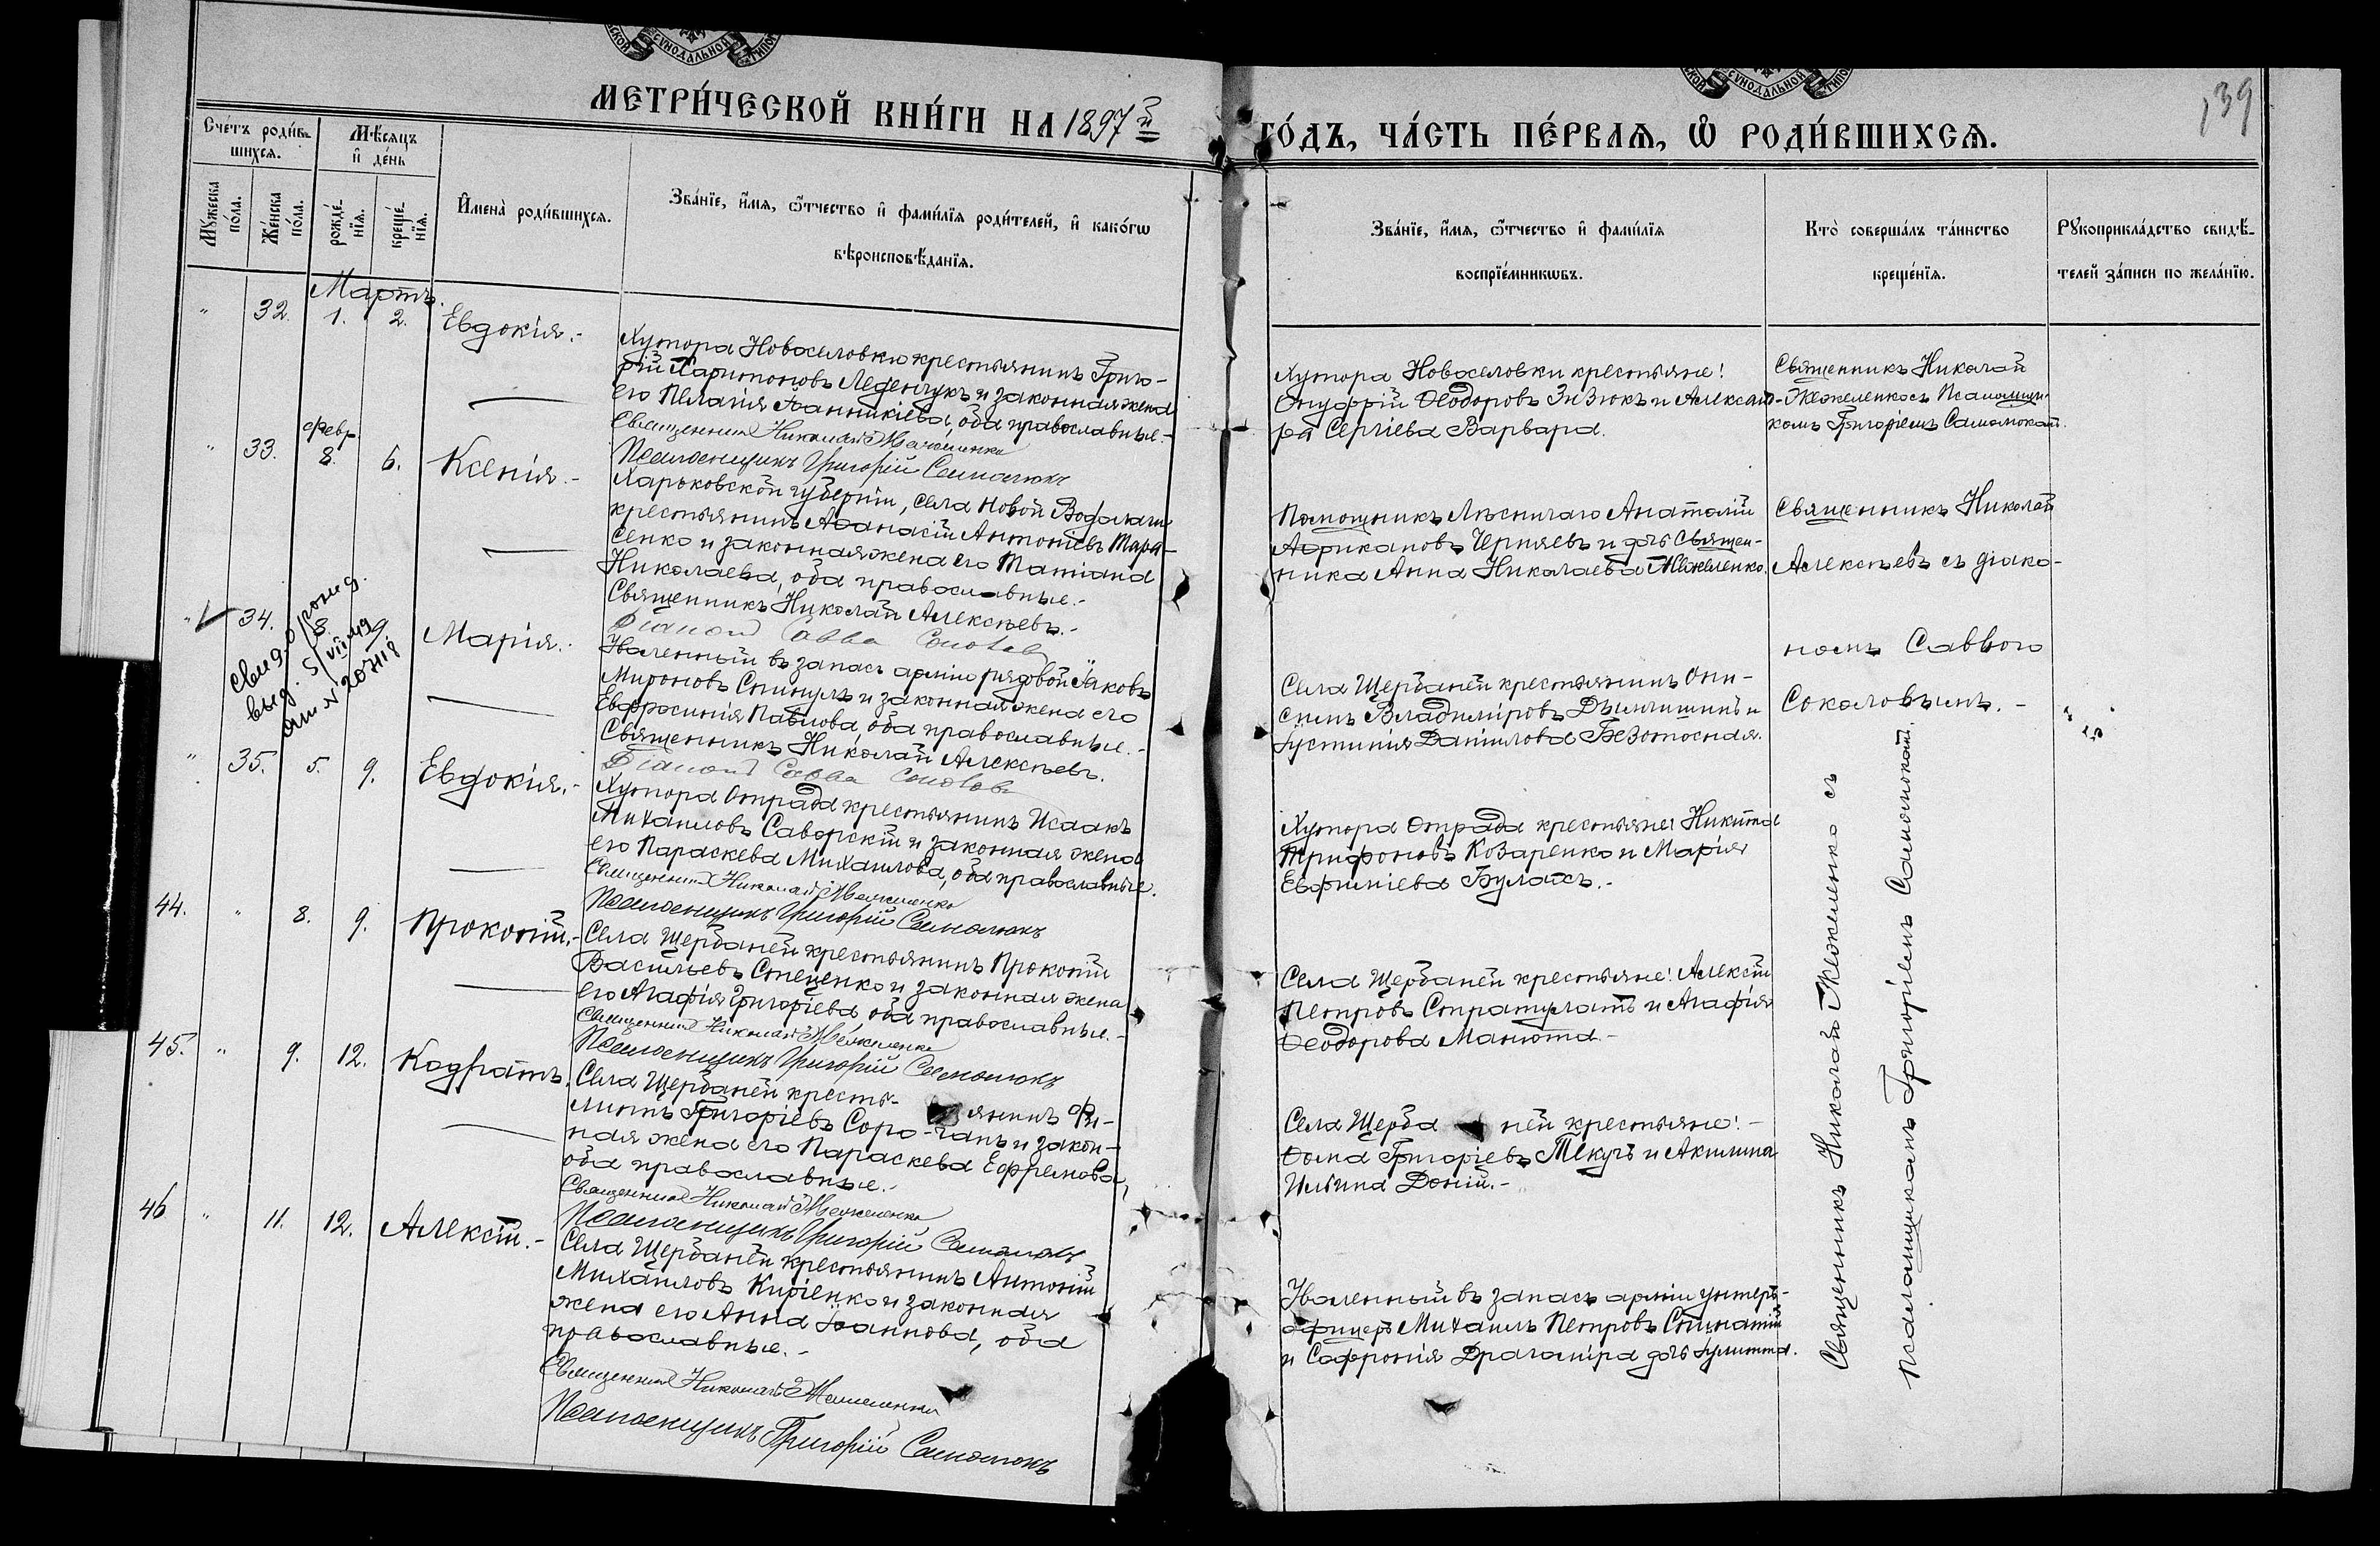 СУНОДАЛЬНОЙ
СУНОДАЛЬНОЙ
139
МЕТРИ́ЧЕСКОЙ КНИ́ГИ НА 1897й
ГО́ДЪ, ЧА́СТЬ ПЕ́РВАѦ, Ѡ҆ РОДИ́ВШИХСѦ.
Сче́тъ роди́в-
шихсѧ.
Мѣ́сѧцъ
и҆ де́нь
Мꙋ́жеска
по́ла.
Же́нска
по́ла.
рожде́-
нїѧ.
креще́-
нїѧ.
И҆мена̀ роди́вшихсѧ.
Зва́нїе, и҆́мѧ, ѻ҆́тчество и҆ фами́лїѧ роди́телей, и҆ како́гѡ
вѣроисповѣ́данїѧ.
Зва́нїе, и҆́мѧ, ѻ҆́тчество и҆ фами́лїѧ
воспрїе́мникѡвъ.
Кто̀ соверша́лъ та́инство
креще́нїѧ.
Рꙋкоприкла́дство свидѣ́-
телей за́писи по жела́нїю.
Мартъ.
" 32. 1. 2. Евдокія.-
Хутора Новоселовки крестьянинъ Григо-
рій Харитоновъ Леденчукъ и законная жена
его Пелагія Іоанникіева, оба православные.-
Священникъ Николай Межеленко
Псаломщикъ Григорій Самолюкъ
Хутора Новоселовки крестьяне:
Онуфрій Ѳеодоровъ Зизюкъ и Алексан-
ра Сергіева Варвара.
Священникъ Николай
съ Псаломщи-
комъ Григоріемъ
" 33. февр. 8. 6. Ксенія.-
Харьковской губерніи, села Новой Водолаги
крестьянинъ Аѳанасій Антоніевъ Тара-
сенко и законная жена его Татіана
Николаева, оба православные.-
Священникъ Николай Алексѣевъ.-
Діаконъ Савва
Помощникъ Лѣсничаго Анатолій
Африкановъ Черняевъ и дочь Священ-
ника Анна Николаева
Священникъ Николай
Алексѣевъ съ діако-
номъ Саввою
Соколовымъ.-
" 34. 8. 9. Марія.-
свид о рожд.
выд. 5/VII 49
Уволенный въ запасъ арміи рядовой Іаковъ
Мироновъ Спинулъ и законная жена его
Евфросинія Павлова, оба православные.-
Священникъ Николай Алексѣевъ.
Діаконъ Савва
Села Щербаней крестьянинъ Они-
симъ Владиміровъ и
Іустинія Даніилова Безотосная.
" 35. 5. 9. Евдокія.-
Хутора Отрада крестьянинъ Исаакъ
Михаиловъ Саворскій и законная жена
его Параскева Михаилова, оба православные.
Священникъ Николай Межеленко
Псаломщикъ Григорій Самолюкъ
Хутора Отрада крестьяне: Никита
Трифоновъ Козаренко и Марія
Евфиміева Булахъ.-
44. " 8. 9. Прокопій.-
Села Щербаней крестьянинъ Прокопій
Васильевъ Стеценко и законная жена
его Агафія Григоріева, оба православные.-
Священникъ Николай Межеленко
Псаломщикъ Григорій Самолюкъ
Села Щербаней крестьяне: Алексій
Петровъ Стратулатъ и Агафія
Ѳеодорова Манюта.-
45. " 9. 12. Кодратъ.
Села Щербаней кресть- янинъ Фи-
липпъ Григоріевъ Соро-чанъ и закон-
ная жена его Параскева Ефремова,
оба православные.-
Священникъ Николай Межеленко
Псаломщикъ Григорій Самолюкъ
Села Щерба ней крестьяне:-
Ѳома Григоріевъ Текучъ и Акилина
Ильина Доній.-
46 " 11. 12. Алексій.-
Села Щербаней крестьянинъ Антоній
Михаиловъ Киріенко и законная
жена его Анна Іоаннова, оба
православные.-
Священникъ Николай Межеленко
Псаломщикъ Григорій Самолюкъ
Уволенный въ запасъ арміи унтеръ-
офицеръ Михаилъ Петровъ
и Софронія Драгомира дочь Іулитта.
Священникъ Николай съ
Псаломщикомъ Григоріемъ